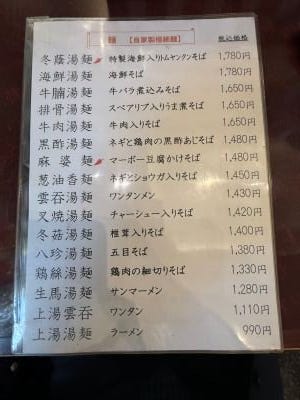 麺 【自家製極細麺】 税込価格
冬蔭湯麺 特製海鮮入りトムヤンクンそば 1,780円
海鮮湯麺 海鮮そば 1,780円
牛腩湯麺 牛バラ煮込みそば 1,650円
排骨湯麺 スペアリブ入りうま煮そば 1,650円
牛肉湯麺 牛肉入りそば 1,650円
黒酢湯麺 ネギと鶏肉の黒酢あじそば 1,480円
麻婆麺 マーボー豆腐かけそば 1,480円
葱油香麺 ネギとショウガ入りそば 1,450円
雲呑湯麺 ワンタンメン 1,430円
叉焼湯麺 チャーシュー入りそば 1,420円
冬菇湯麺 椎茸入りそば 1,400円
八珍湯麺 五目そば 1,380円
鶏絲湯麺 鶏肉の細切りそば 1,330円
生馬湯麺 サンマーメン 1,280円
上湯雲呑 ワンタン 1,110円
上湯湯麺 ラーメン 990円